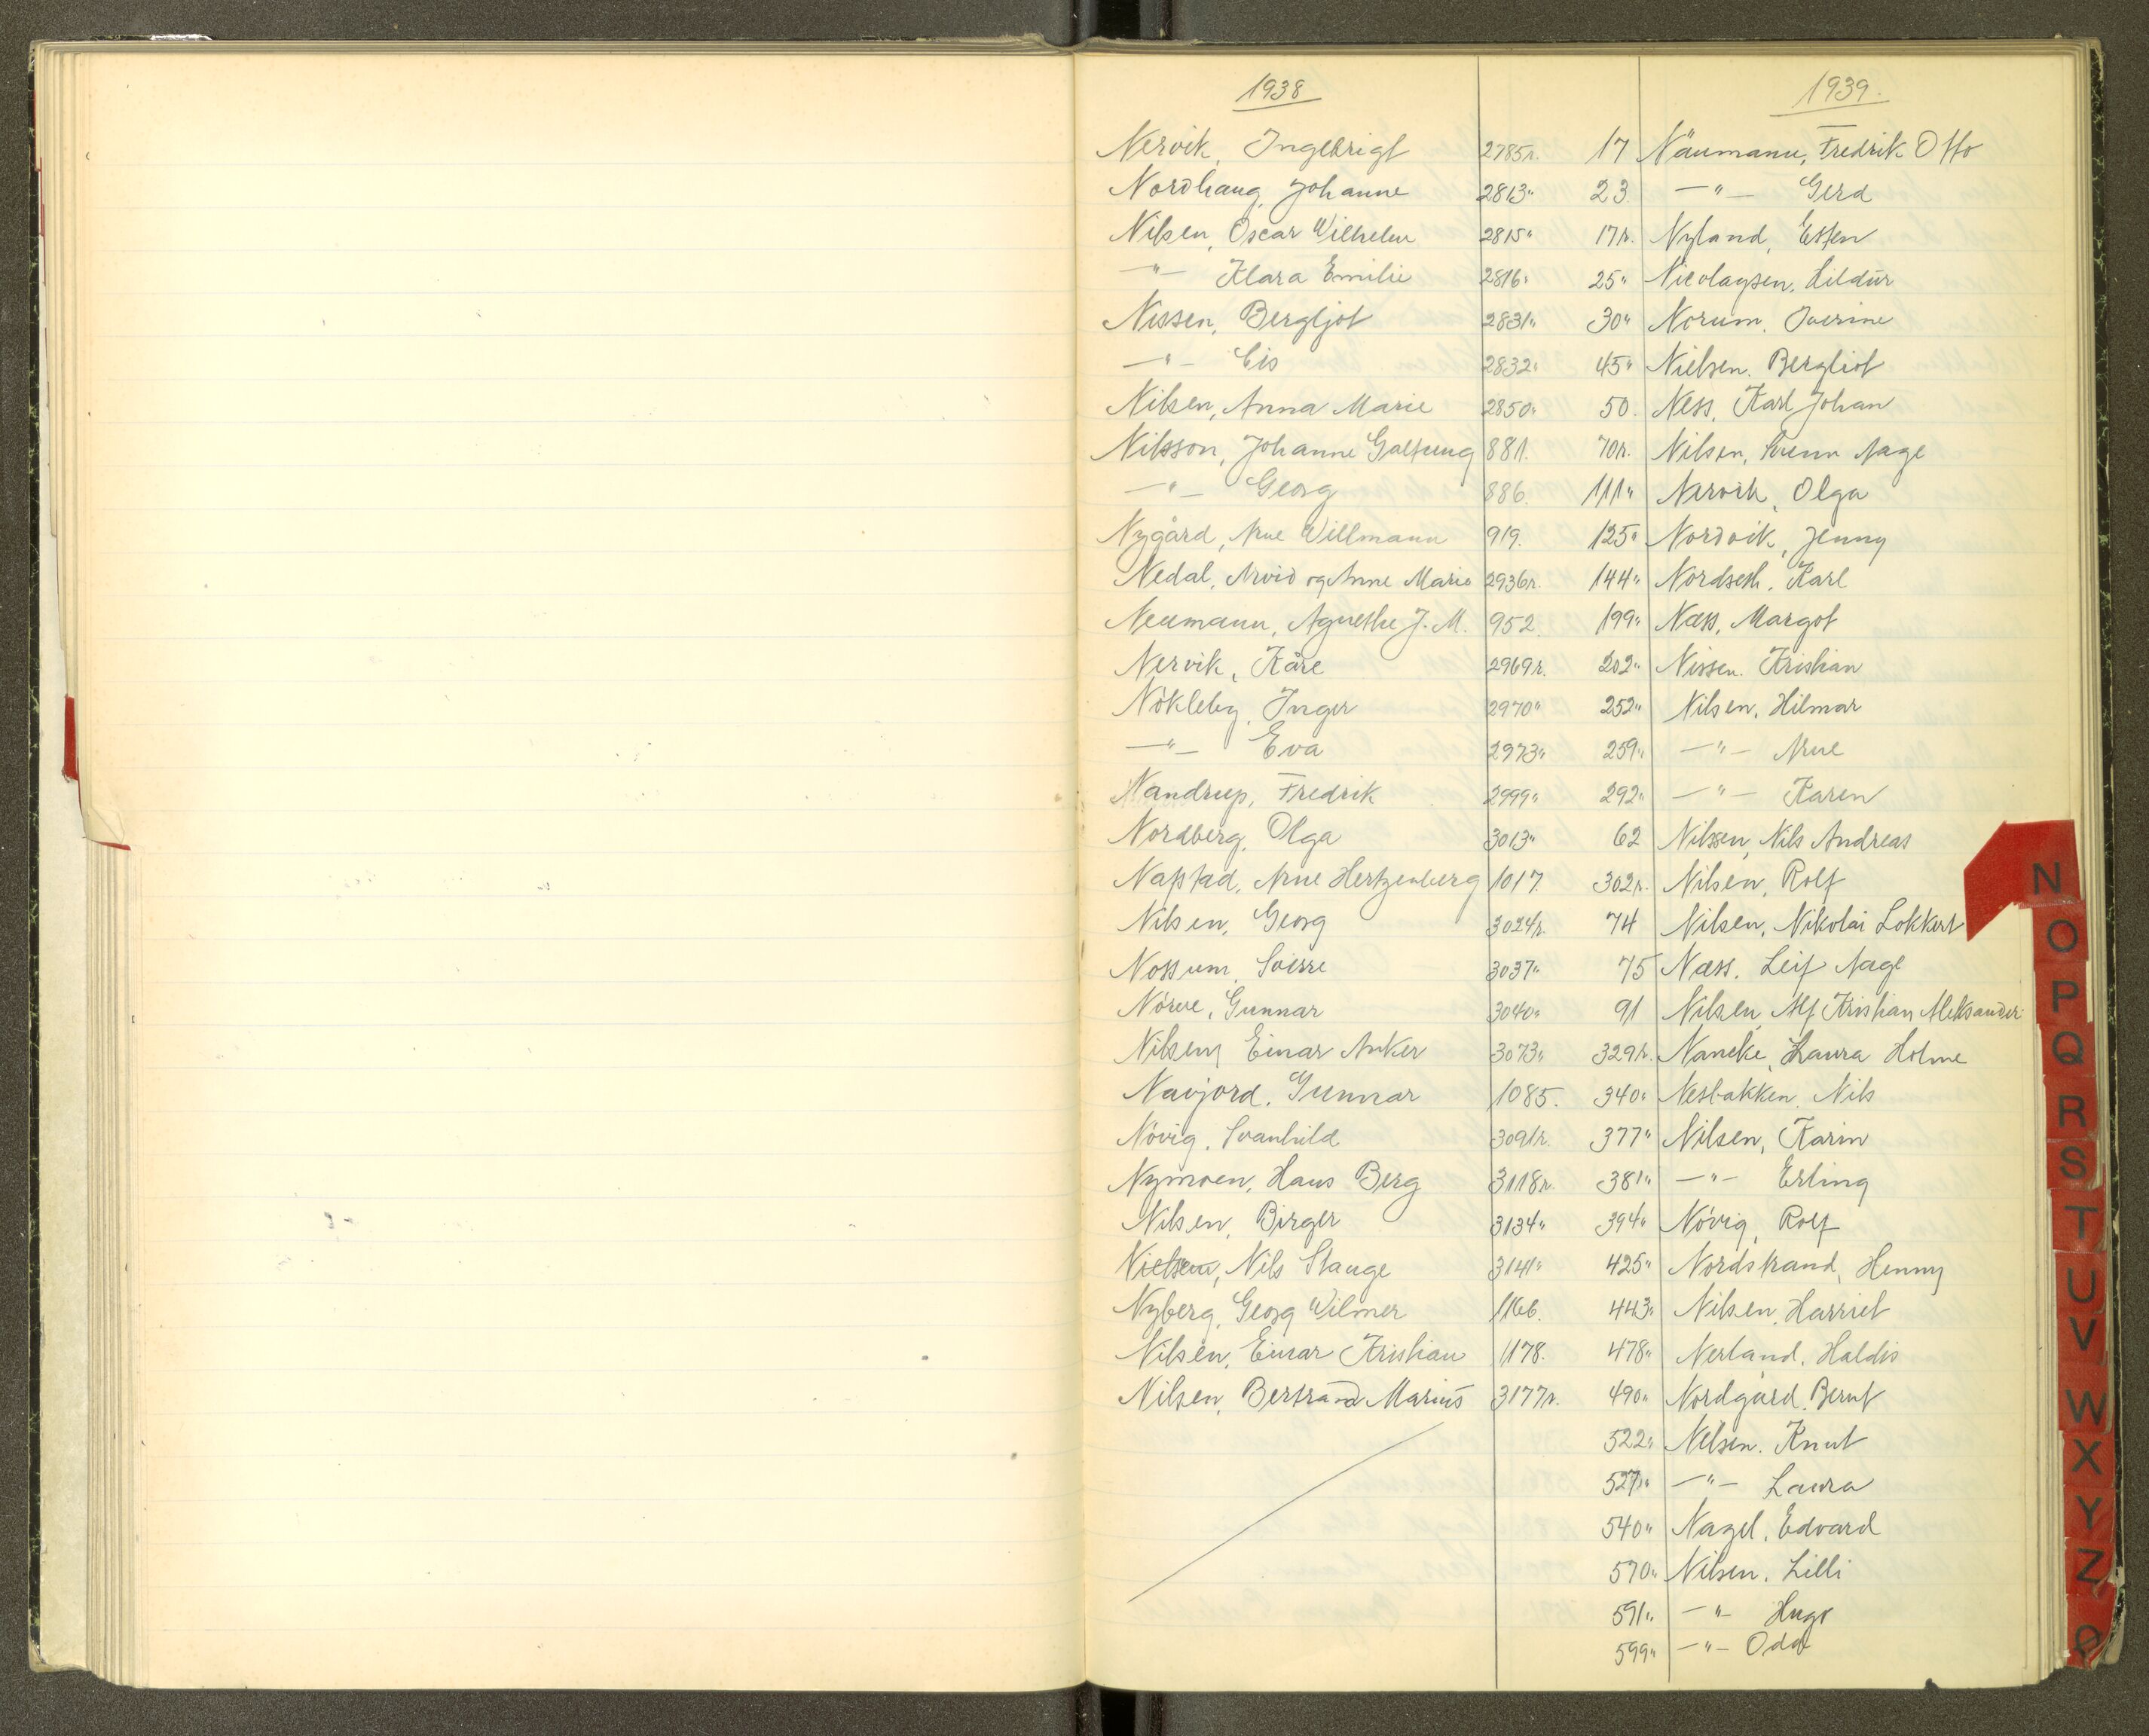 1938 1939.
Nervik, Ingebrigt 2785r. 17 Näumann, Fredrik Otto
Nordhaug, Johanne 2813" 23 —"— Gerd
Nilsen, Oscar Wilhelm 2815" 17r. Nyland, Esten
—"— Klara Emilie 2816" 25" Nicolaysen, Lildur
Nissen, Bergljot 2831" 30" Norum, Iverine
—"— Eis 2832" 45" Nielsen, Bergliot
Nilsen, Anna Marie 2850" 50. Ness, Karl Johan
Nilsson, Johanne Galtung 881. 70r. Nilsen, Svenn Aage
—"— Georg 886. 111" Nervik, Olga
Nygård, Arne Willmann 919. 125" Nordvik, Jenny
Nedal, Arvid og Anne Marie 2936r. 144" Nordseth, Karl
Neumann, Agnethe J. M. 952. 199" Næss, Margot
Nervik, Kåre 2969r. 202" Nissen, Kristian
Nökleby, Inger 2970" 252" Nilsen, Hilmar
—"— Eva 2973" 259" —"— Arne
Nandrup, Fredrik 2999" 292" —"— Karen
Nordberg, Olga 3013" 62 Nilssen, Nils Andreas
Napstad, Arne Hertzenberg 1017. 302r. Nilsen, Rolf
Nilsen, Georg 3024r. 74 Nilsen, Nikolai Lokkert
Nossum, Sverre 3037" 75 Næss, Leif Aage
Nörve, Gunnar 3040" 91 Nilsen, Alf Kristian Aleksander
Nilsen, Einar Anker 3073" 329r. Nancke, Laura Holme
Navjord, Gunnar 1085. 340" Nesbakken, Nils
Növig, Svanhild 3091r. 377" Nilsen, Karin
Nymoen, Hans Berg 3118r. 381" —"— Erling
Nilsen, Birger 3134" 394" Növig, Rolf
Nielsen, Nils Stange 3141" 425" Nordstrand, Henny
Nyberg, Georg Wilmer 1166. 443" Nilsen, Harriet
Nilsen, Einar Kristian 1178. 478" Nerland, Haldis
Nilsen, Bertrand Marius 3177r. 490" Nordgård, Bernt
522" Nelsen, Knut
527" —"— Laura
540" Nagel, Edvard
570" Nilsen, Lilli
591" —"— Hugo
599" —"— Odd
N
O
P
Q
R
S
T
U
V
W
X
Y
Z